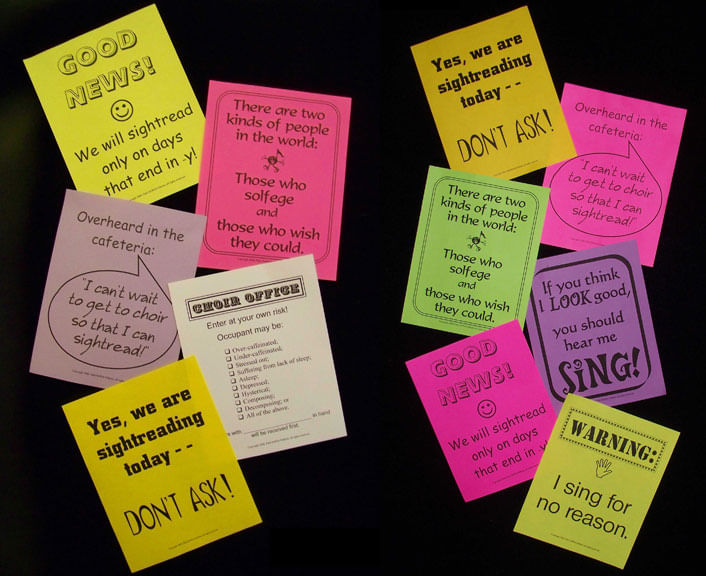 GOOD
NEWS!
We will sightread
only on days
that end in -y!
There are two
kinds of people
in the world:
Those who
solfege
and
those who wish
they could.
Overheard in the
cafeteria:
"I can't wait
to get to choir
so that I can
sightread!"
CHOIR OFFICE
Enter at your own risk!
Occupant may be:
Over-caffeinated;
Under-caffeinated;
Stressed out;
Suffering from lack of sleep;
Asleep;
Depressed;
Hysterical;
Composing;
Decomposing; or
All of the above.
with
in hand
will be received first.
Yes, we are
sightreading
today - -
DON'T ASK!
Yes, we are
sightreading
today - -
DON'T ASK!
Overheard in the
cafeteria:
"I can't wait
to get to choir
so that I can
sightread!"
There are two
kinds of people
in the world:
Those who
solfege
and
those who wish
they could.
If you think
I LOOK good,
you should
hear me
SING!
GOOD
NEWS!
We will sightread
only on days
that end in -y!
WARNING:
I sing for
no reason.